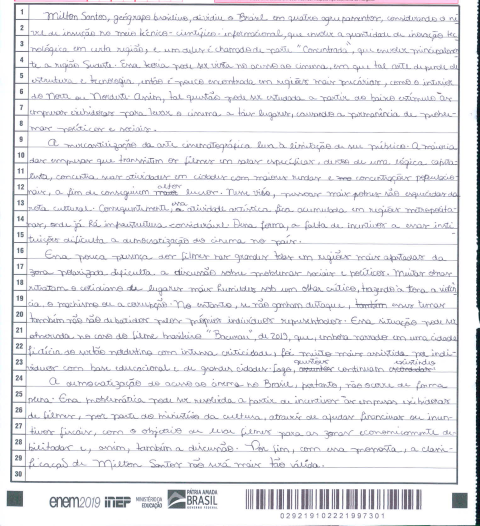 1 Milton Santos, geógrafo brasileiro, dividiu o Brasil em quatro agrupamentos, considerando o ní-
2 vel de inserção no meio técnico-científico-informacional, que envolve a quantidade de inovação tec-
3 nológica em certa região, e um deles é chamado de parte "Concentrada", que envolve principalmen-
4 te a região Sudeste. Essa teoria pode ser vista no acesso ao cinema, em que tal arte depende de
5 estrutura e tecnologia, então é pouco encontrada em regiões mais precárias, como o interior
6 do Norte ou Nordeste. Assim, tal questão pode ser estudada a partir do baixo estímulo às
7 empresas exibidoras para levar o cinema a tais lugares, causando a permanência de proble-
8 mas políticos e sociais.
9 A mercantilização da arte cinematográfica leva à limitação de seu público. A maioria
10 das empresas que transmitem os filmes em salas específicas, devido a uma lógica capita-
11 lista, concentra suas atividades em cidades com maiores rendas e concentrações populacio-
12 nais, a fim de conseguirem altos lucros. Nesse viés, pessoas mais pobres são esquecidas da
13 rota cultural. Consequentemente, essa atividade artística fica acumulada em regiões metropolita-
14 nas, onde já há infraestrutura considerável. Dessa forma, a falta de incentivos a essas insti-
15 tuições dificulta a democratização do cinema no país.
16 Essa pouca presença dos filmes nas grandes telas em regiões mais afastadas da
17 zona polarizada dificulta a discussão sobre problemas sociais e políticos. Muitas obras
18 retratam o cotidiano de lugares mais humildes sob um olhar crítico, trazendo à tona a violên-
19 cia, o machismo e a corrupção. No entanto, se não ganham destaque, esses temas
20 também não são debatidos pelos próprios indivíduos representados. Essa situação pode ser
21 observada no caso do filme brasileiro "Bacurau", de 2019, que, embora narrado em uma cidade
22 fictícia do sertão nordestino com intensa criticidade, foi muito mais assistido por indi-
23 víduos com base educacional e de grandes cidades. Logo, questões continuam existindo
24 A democratização do acesso ao cinema no Brasil, portanto, não ocorre de forma
25 plena. Essa problemática pode ser resolvida a partir de incentivos às empresas exibidoras
26 de filmes, por parte do ministério da cultura, através de ajudas financeiras ou incen-
27 tivos fiscais, com o objetivo de levar filmes para as zonas economicamente de-
28 bilitadas e, assim, também a discussão. Por fim, com essa proposta, a classi-
29 ficação de Milton Santos não será mais tão válida.
30
enem2019 INEP MINISTÉRIO DA EDUCAÇÃO PÁTRIA AMADA BRASIL GOVERNO FEDERAL
029219102221997301